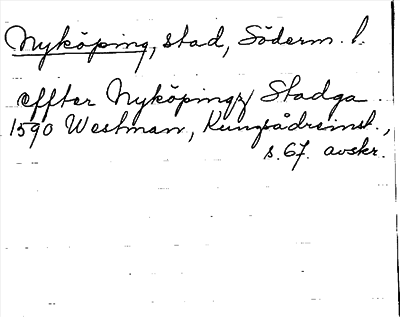 Nyköping, stad, Söderm. l.
effter Nyköpings Stadga
1590 Westman, Kungsådreinst.,
s. 67. avskr.